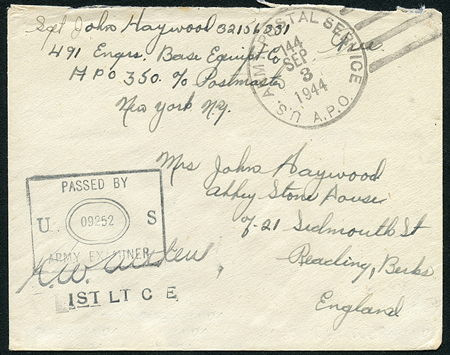 Sgt John Haywood 32156331
Free
491 Engrs. Base Equipt Co
A P O 350. c/o Postmaster
New York N.Y.
U.S. ARMY POSTAL SERVICE
A.P.O.
SEP
3
1944
Mrs John Haywood
Abbey Stone House
7-21 Sidmouth St
Reading, Berks
England
PASSED BY
U. 09252 S
ARMY EXAMINER
1ST LT C E